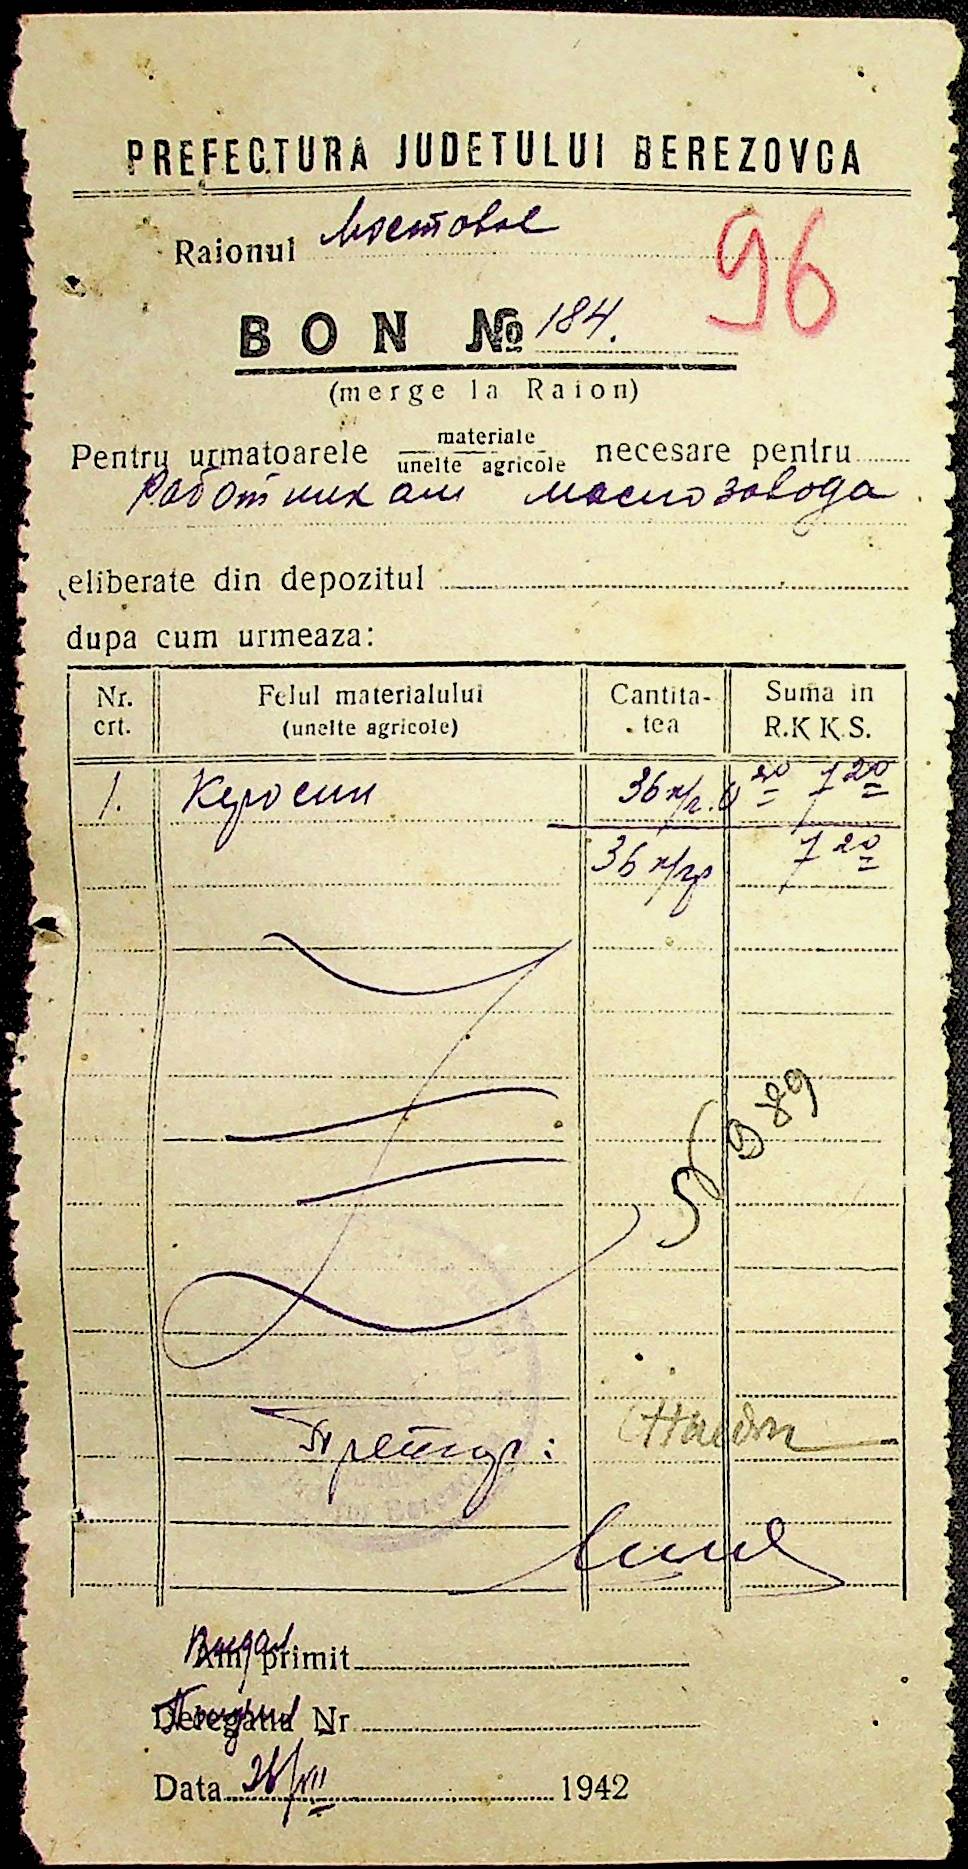 PREFECTURA JUDETULUI BEREZOVCA
Raionul Мостовое
96
BON № 184.
(merge la Raion)
Pentru urmatoarele materiale / unelte agricole necesare pentru
Работникам маслозавода
eliberate din depozitul
dupa cum urmeaza:
Nr. crt. Felul materialului (unelte agricole) Cantita-tea Suma in R.K K.S.
1. Керосин 36 к/г. 0 20 7 20
36 к/гр 7 20
Претор:
Выдал
Am primit
Delegatia Nr
Data 28/VII 1942